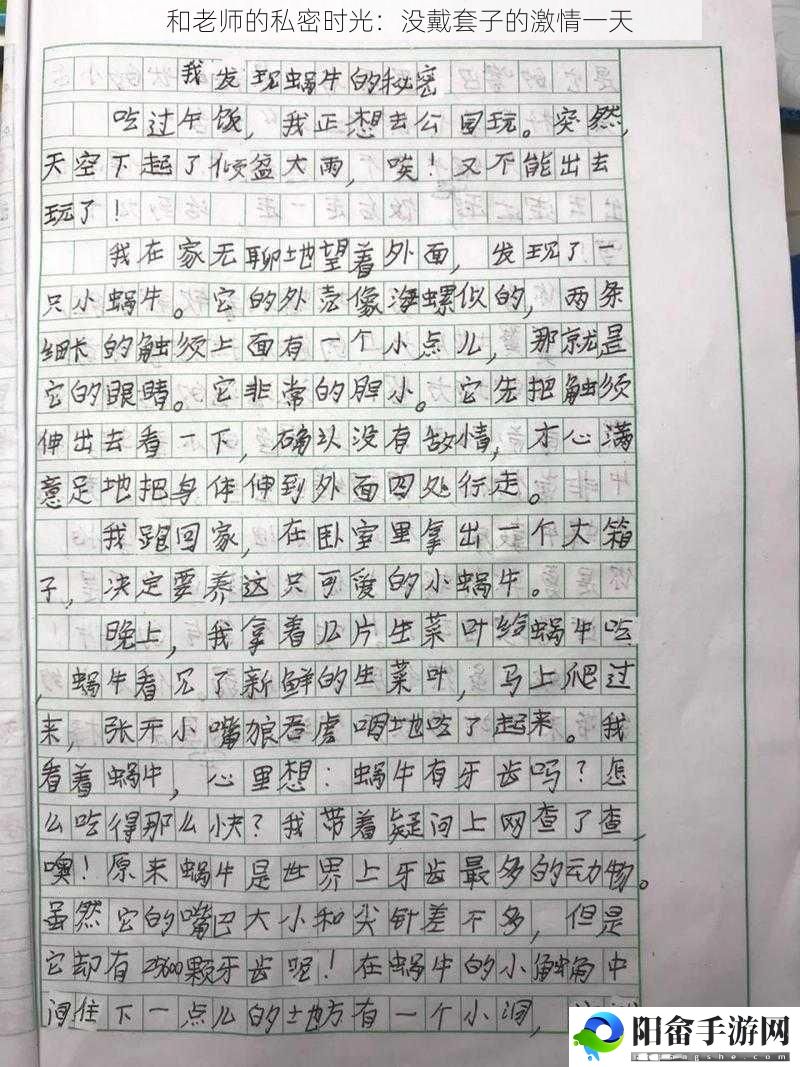 和老师的私密时光：没戴套子的激情一天
我发现蜗牛的秘密
吃过午饭，我正想去公园玩。突然，
天空下起了倾盆大雨，唉！又不能出去
玩了！
我在家无聊地望着外面，发现了一
只小蜗牛。它的外壳像海螺似的，两条
细长的触须上面有一个小点儿，那就是
它的眼睛。它非常的胆小。它先把触须
伸出去看一下，确认没有敌情，才心满
意足地把身体伸到外面四处行走。
我跑回家，在卧室里拿出一个大箱
子，决定要养这只可爱的小蜗牛。
晚上，我拿着几片生菜叶给蜗牛吃
，蜗牛看见了新鲜的生菜叶，马上爬过
来，张开小嘴狼吞虎咽地吃了起来。我
看着蜗牛，心里想：蜗牛有牙齿吗？怎
么吃得那么快？我带着疑问上网查了查，
噢！原来蜗牛是世界上牙齿最多的动物。
虽然它的嘴巴大小和尖针差不多，但是
它却有25600颗牙齿呢！在蜗牛的小触角中
间往下一点儿的地方有一个小洞，
阳畲手游网